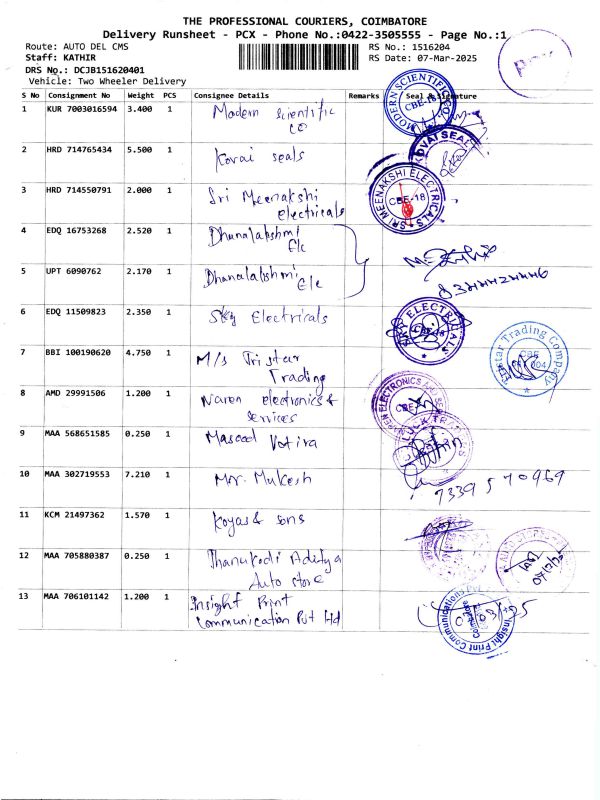 THE PROFESSIONAL COURIERS, COIMBATORE
Delivery Runsheet - PCX - Phone No.:0422-3505555 - Page No.:1
Route: AUTO DEL CMS
RS No.: 1516204
Staff: KATHIR
RS Date: 07-Mar-2025
DRS No.: DCJB151620401
Vehicle: Two Wheeler Delivery
S No Consignment No Weight PCS Consignee Details Remarks Seal & Signature
1 KUR 7003016594 3.400 1 Modern scientific
co
MODERN SCIENTIFIC CO. CBE-18
2 HRD 714765434 5.500 1 Kovai seals
KOVAI SEALS
3 HRD 714550791 2.000 1 Sri Meenakshi
Electricals
SRI MEENAKSHI ELECTRICALS CBE-18
4 EDQ 16753268 2.520 1 Dhanalakshmi
Elc
5 UPT 6090762 2.170 1 Dhanalakshmi Ele
6 EDQ 11509823 2.350 1 Sky Electricals
ELECTRICALS CBE-18
7 BBI 100190620 4.750 1 M/s Tristar
Trading
Tristar Trading Company CBE
8 AMD 29991506 1.200 1 Naren electronics &
services
NAREN ELECTRONICS CBE
9 MAA 568651585 0.250 1 Masood Votira
10 MAA 302719553 7.210 1 Mr. Mukesh
7339570969
11 KCM 21497362 1.570 1 Koyas & sons
12 MAA 705880387 0.250 1 Thanukodi Aditya
Auto store
13 MAA 706101142 1.200 1 Insight Print
Communication Pvt Ltd
Insight Print Communications Pvt